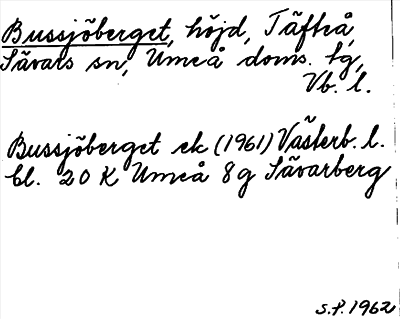 Bussjöberget, höjd, Täfteå,
Sävars sn, Umeå doms. tg,
Vb. l.
Bussjöberget ek (1961) Västerb. l.
bl. 20 K Umeå 8g Sävarberg
S.P. 1962